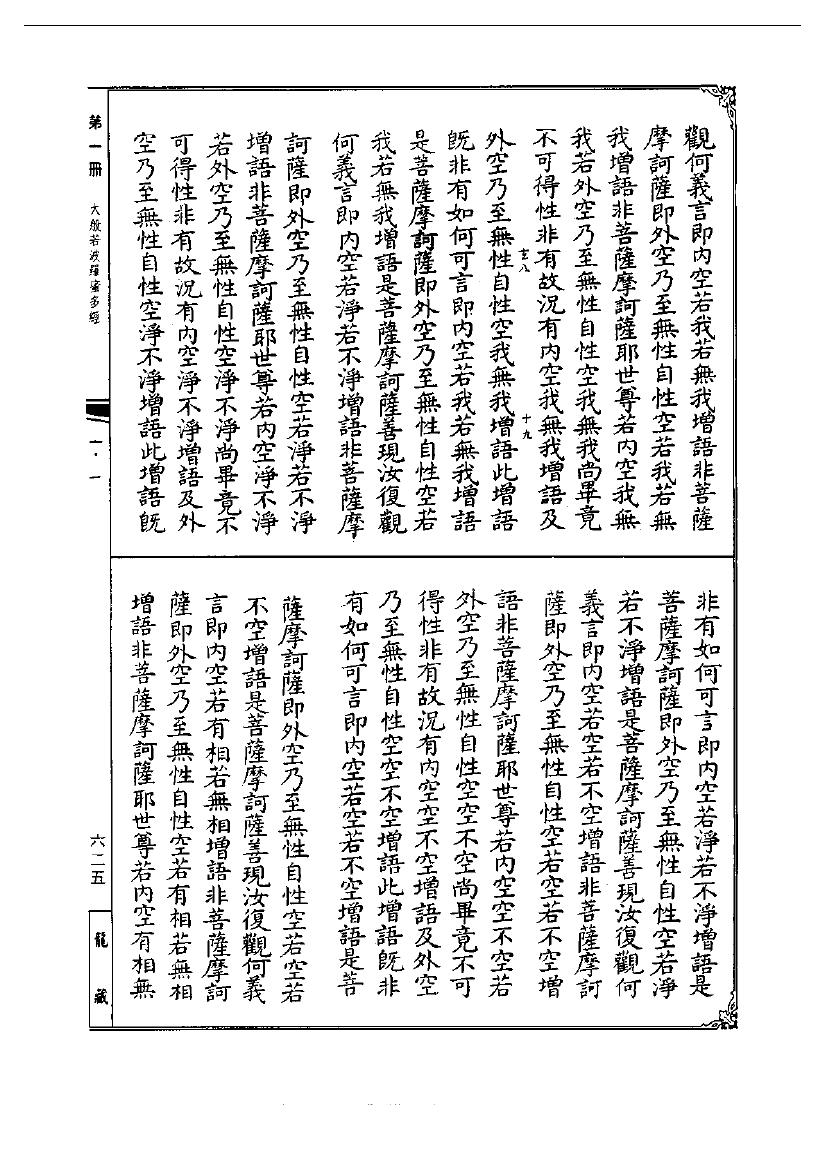 觀何義言即內空若我若無我增語非菩薩
摩訶薩即外空乃至無性自性空若我若無
我增語非菩薩摩訶薩耶世尊若內空我無
我若外空乃至無性自性空我無我尚畢竟
不可得性非有故況有內空我無我增語及
玄八
十九
外空乃至無性自性空我無我增語此增語
既非有如何可言即內空若我若無我增語
是菩薩摩訶薩即外空乃至無性自性空若
我若無我增語是菩薩摩訶薩善現汝復觀
何義言即內空若淨若不淨增語非菩薩摩
訶薩即外空乃至無性自性空若淨若不淨
增語非菩薩摩訶薩耶世尊若內空淨不淨
若外空乃至無性自性空淨不淨尚畢竟不
可得性非有故況有內空淨不淨增語及外
空乃至無性自性空淨不淨增語此增語既
非有如何可言即內空若淨若不淨增語是
菩薩摩訶薩即外空乃至無性自性空若淨
若不淨增語是菩薩摩訶薩善現汝復觀何
義言即內空若空若不空增語非菩薩摩訶
薩即外空乃至無性自性空若空若不空增
語非菩薩摩訶薩耶世尊若內空空不空若
外空乃至無性自性空空不空尚畢竟不可
得性非有故況有內空空不空增語及外空
乃至無性自性空空不空增語此增語既非
有如何可言即內空若空若不空增語是菩
薩摩訶薩即外空乃至無性自性空若空若
不空增語是菩薩摩訶薩善現汝復觀何義
言即內空若有相若無相增語非菩薩摩訶
薩即外空乃至無性自性空若有相若無相
增語非菩薩摩訶薩耶世尊若內空有相無
第一冊 大般若波羅蜜多經
一·一
六二五
龍藏